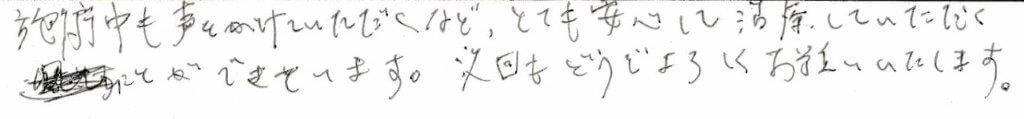 施術中も声をかけていただくなど、とても安心して治療していただく
ことができています。次回もどうぞよろしくお願いいたします。